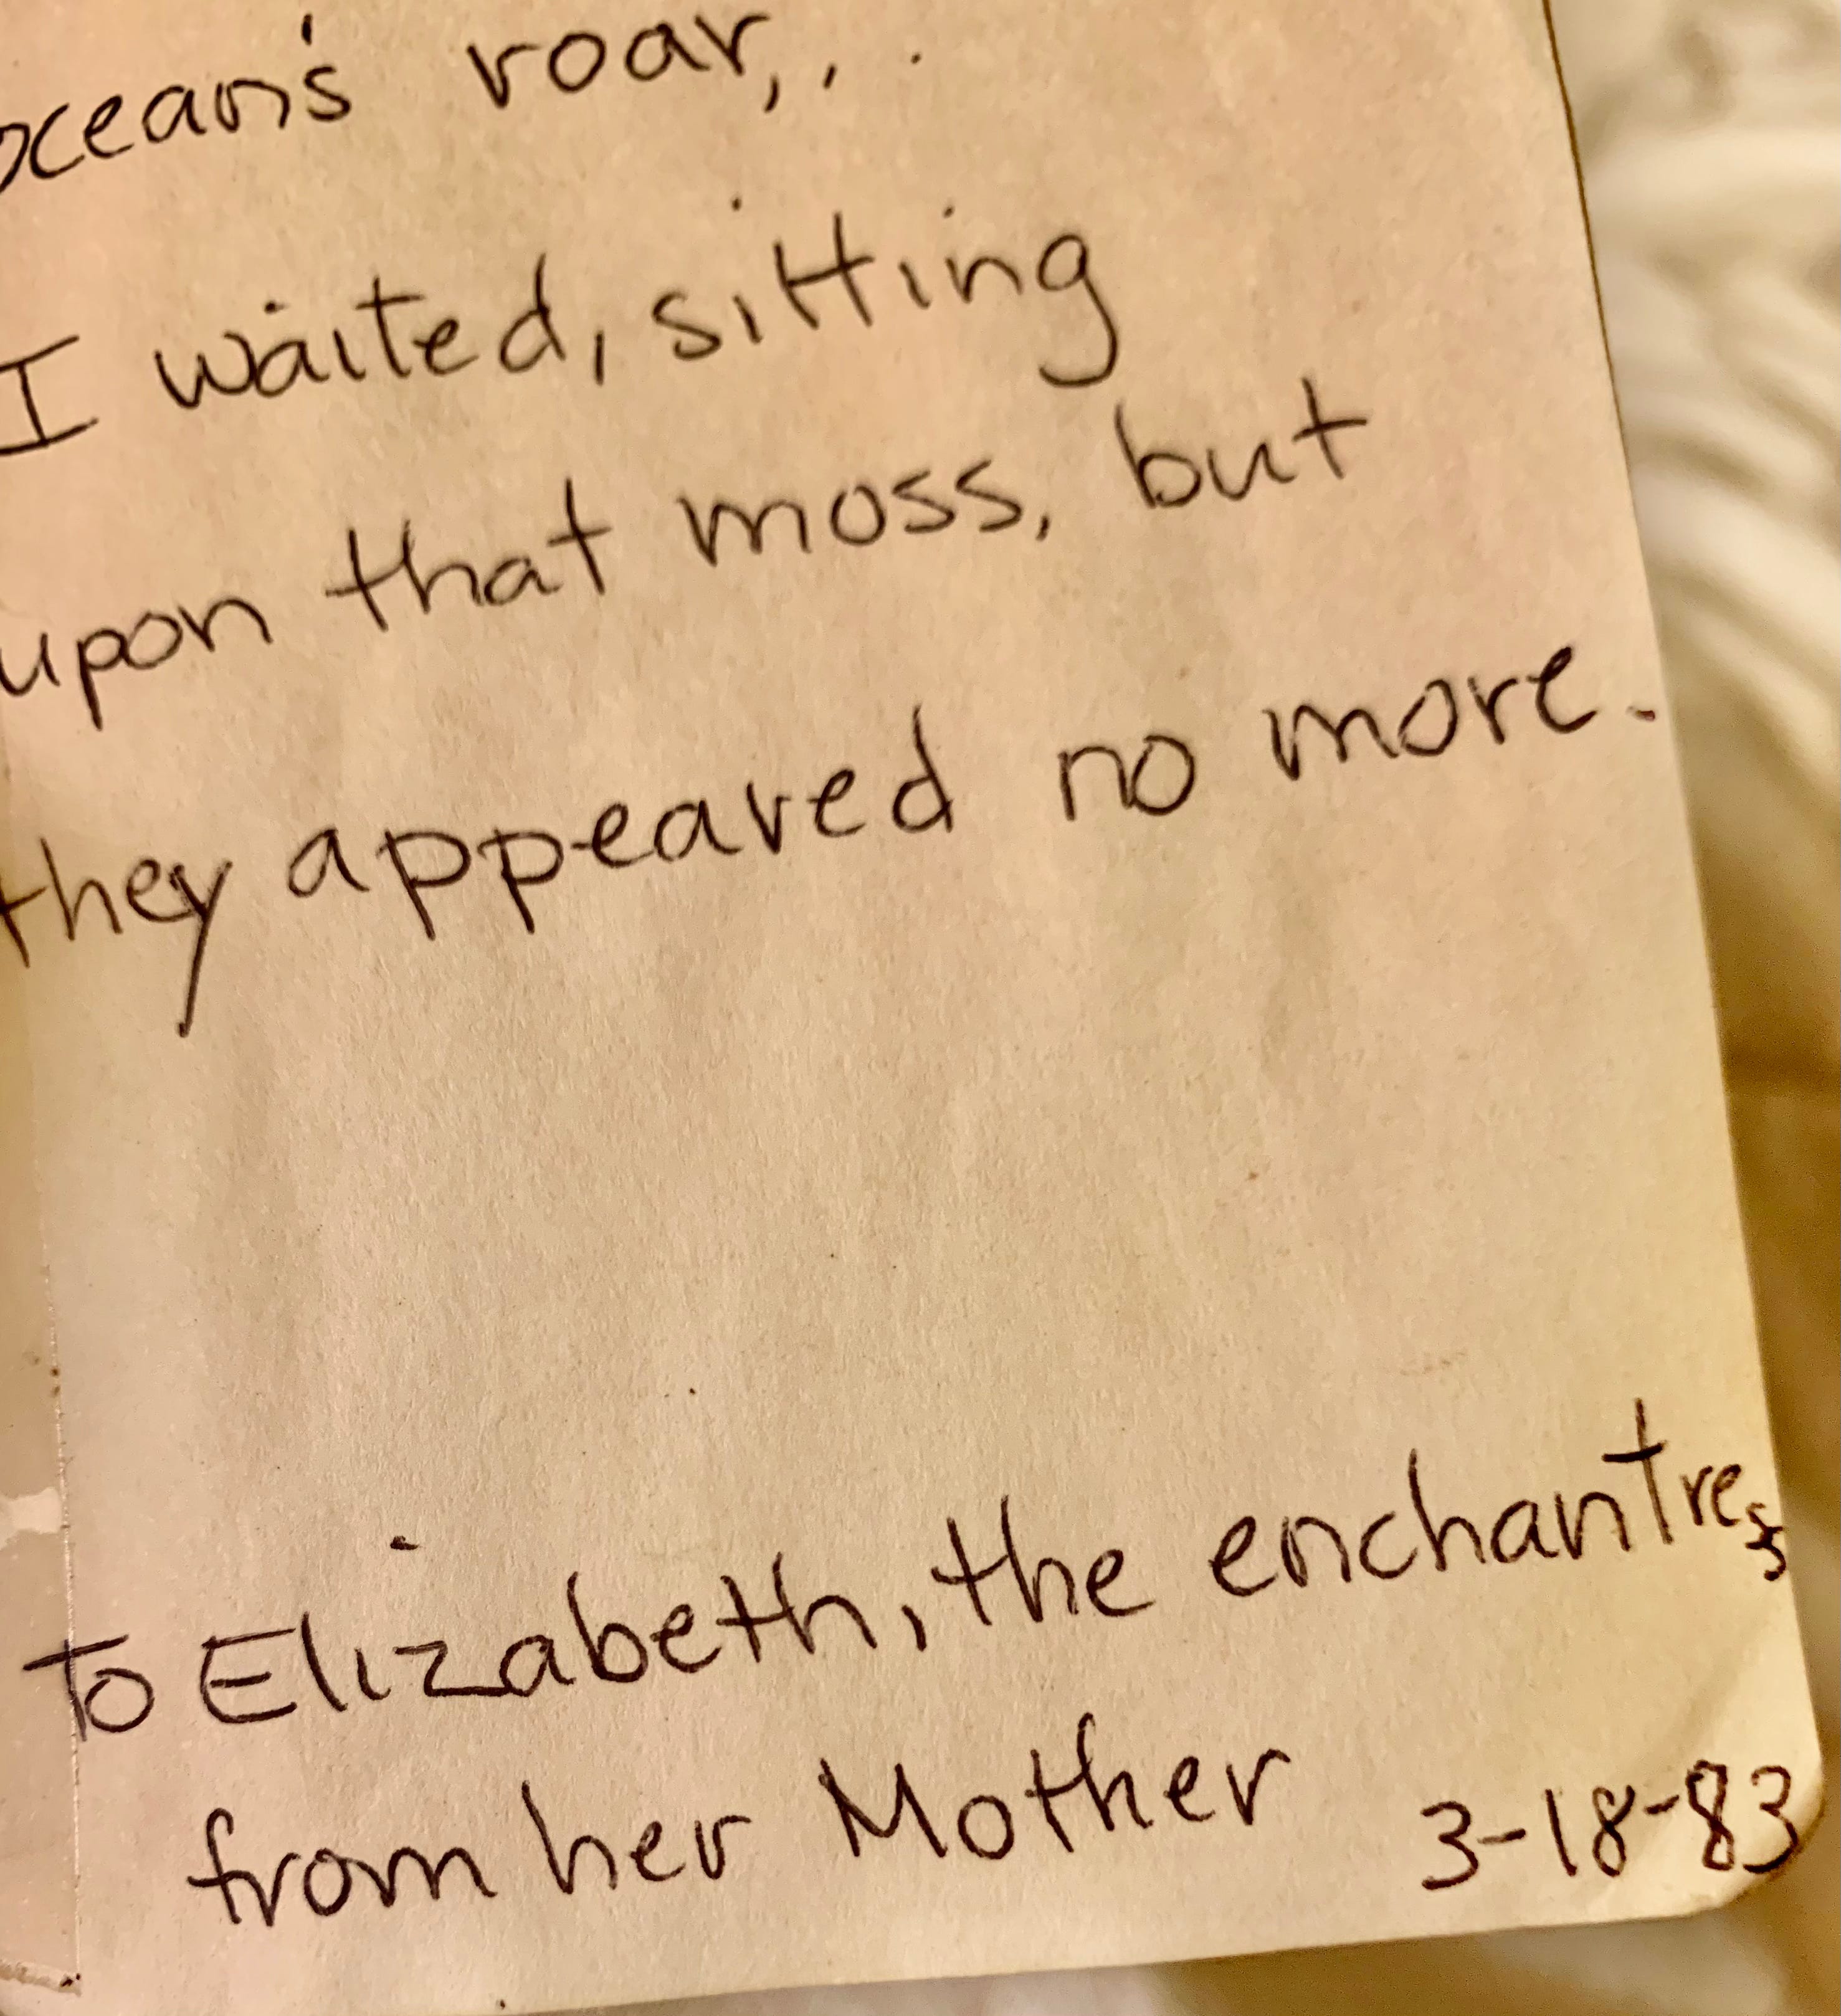 ocean's roar,..
I waited, sitting
upon that moss, but
they appeared no more.
To Elizabeth, the enchantress
from her Mother 3-18-83